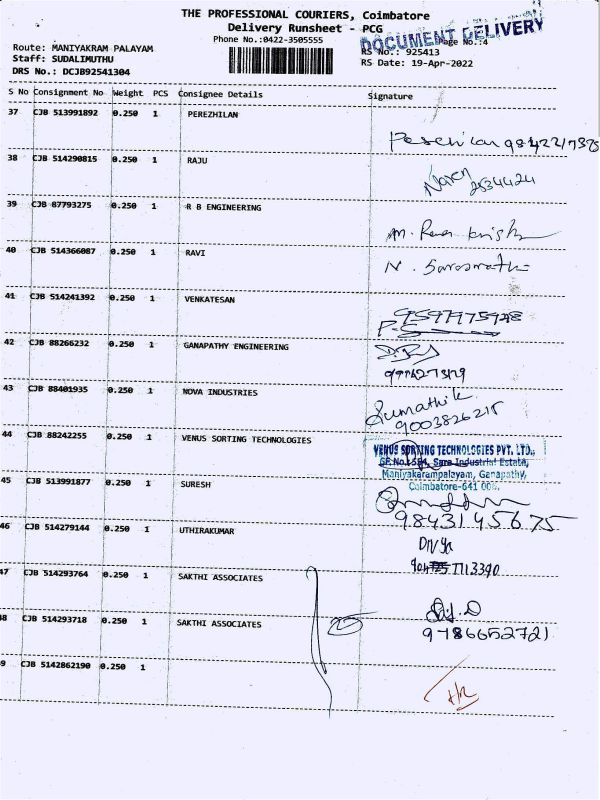 THE PROFESSIONAL COURIERS, Coimbatore
Delivery Runsheet - PCG
DOCUMENT DELIVERY
Phone No.:0422-3505555
Page No.:4
Route: MANIYAKRAM PALAYAM
RS No.: 925413
Staff: SUDALIMUTHU
RS Date: 19-Apr-2022
DRS No.: DCJB92541304
S No Consignment No Weight PCS Consignee Details Signature
37 CJB 513991892 0.250 1 PEREZHILAN
38 CJB 514290815 0.250 1 RAJU
Naren
2534424
39 CJB 87793275 0.250 1 R B ENGINEERING
40 CJB 514366087 0.250 1 RAVI
41 CJB 514241392 0.250 1 VENKATESAN
42 CJB 88266232 0.250 1 GANAPATHY ENGINEERING
43 CJB 88401935 0.250 1 NOVA INDUSTRIES
Sumathi K
9003826215
44 CJB 88242255 0.250 1 VENUS SORTING TECHNOLOGIES
VENUS SORTING TECHNOLOGIES PVT. LTD.,
SF.No.: 584, Sara Industrial Estate,
Maniyakarampalayam, Ganapathy,
Coimbatore-641 006.
45 CJB 513991877 0.250 1 SURESH
9843145675
46 CJB 514279144 0.250 1 UTHIRAKUMAR
Divya
47 CJB 514293764 0.250 1 SAKTHI ASSOCIATES
48 CJB 514293718 0.250 1 SAKTHI ASSOCIATES
9786652721
9 CJB 5142862190 0.250 1